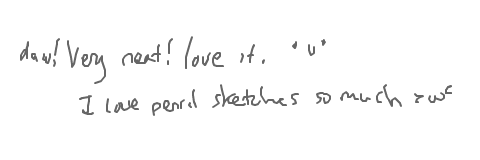 daw! Very neat! love it. *u*
I love pencil sketches so much >w<